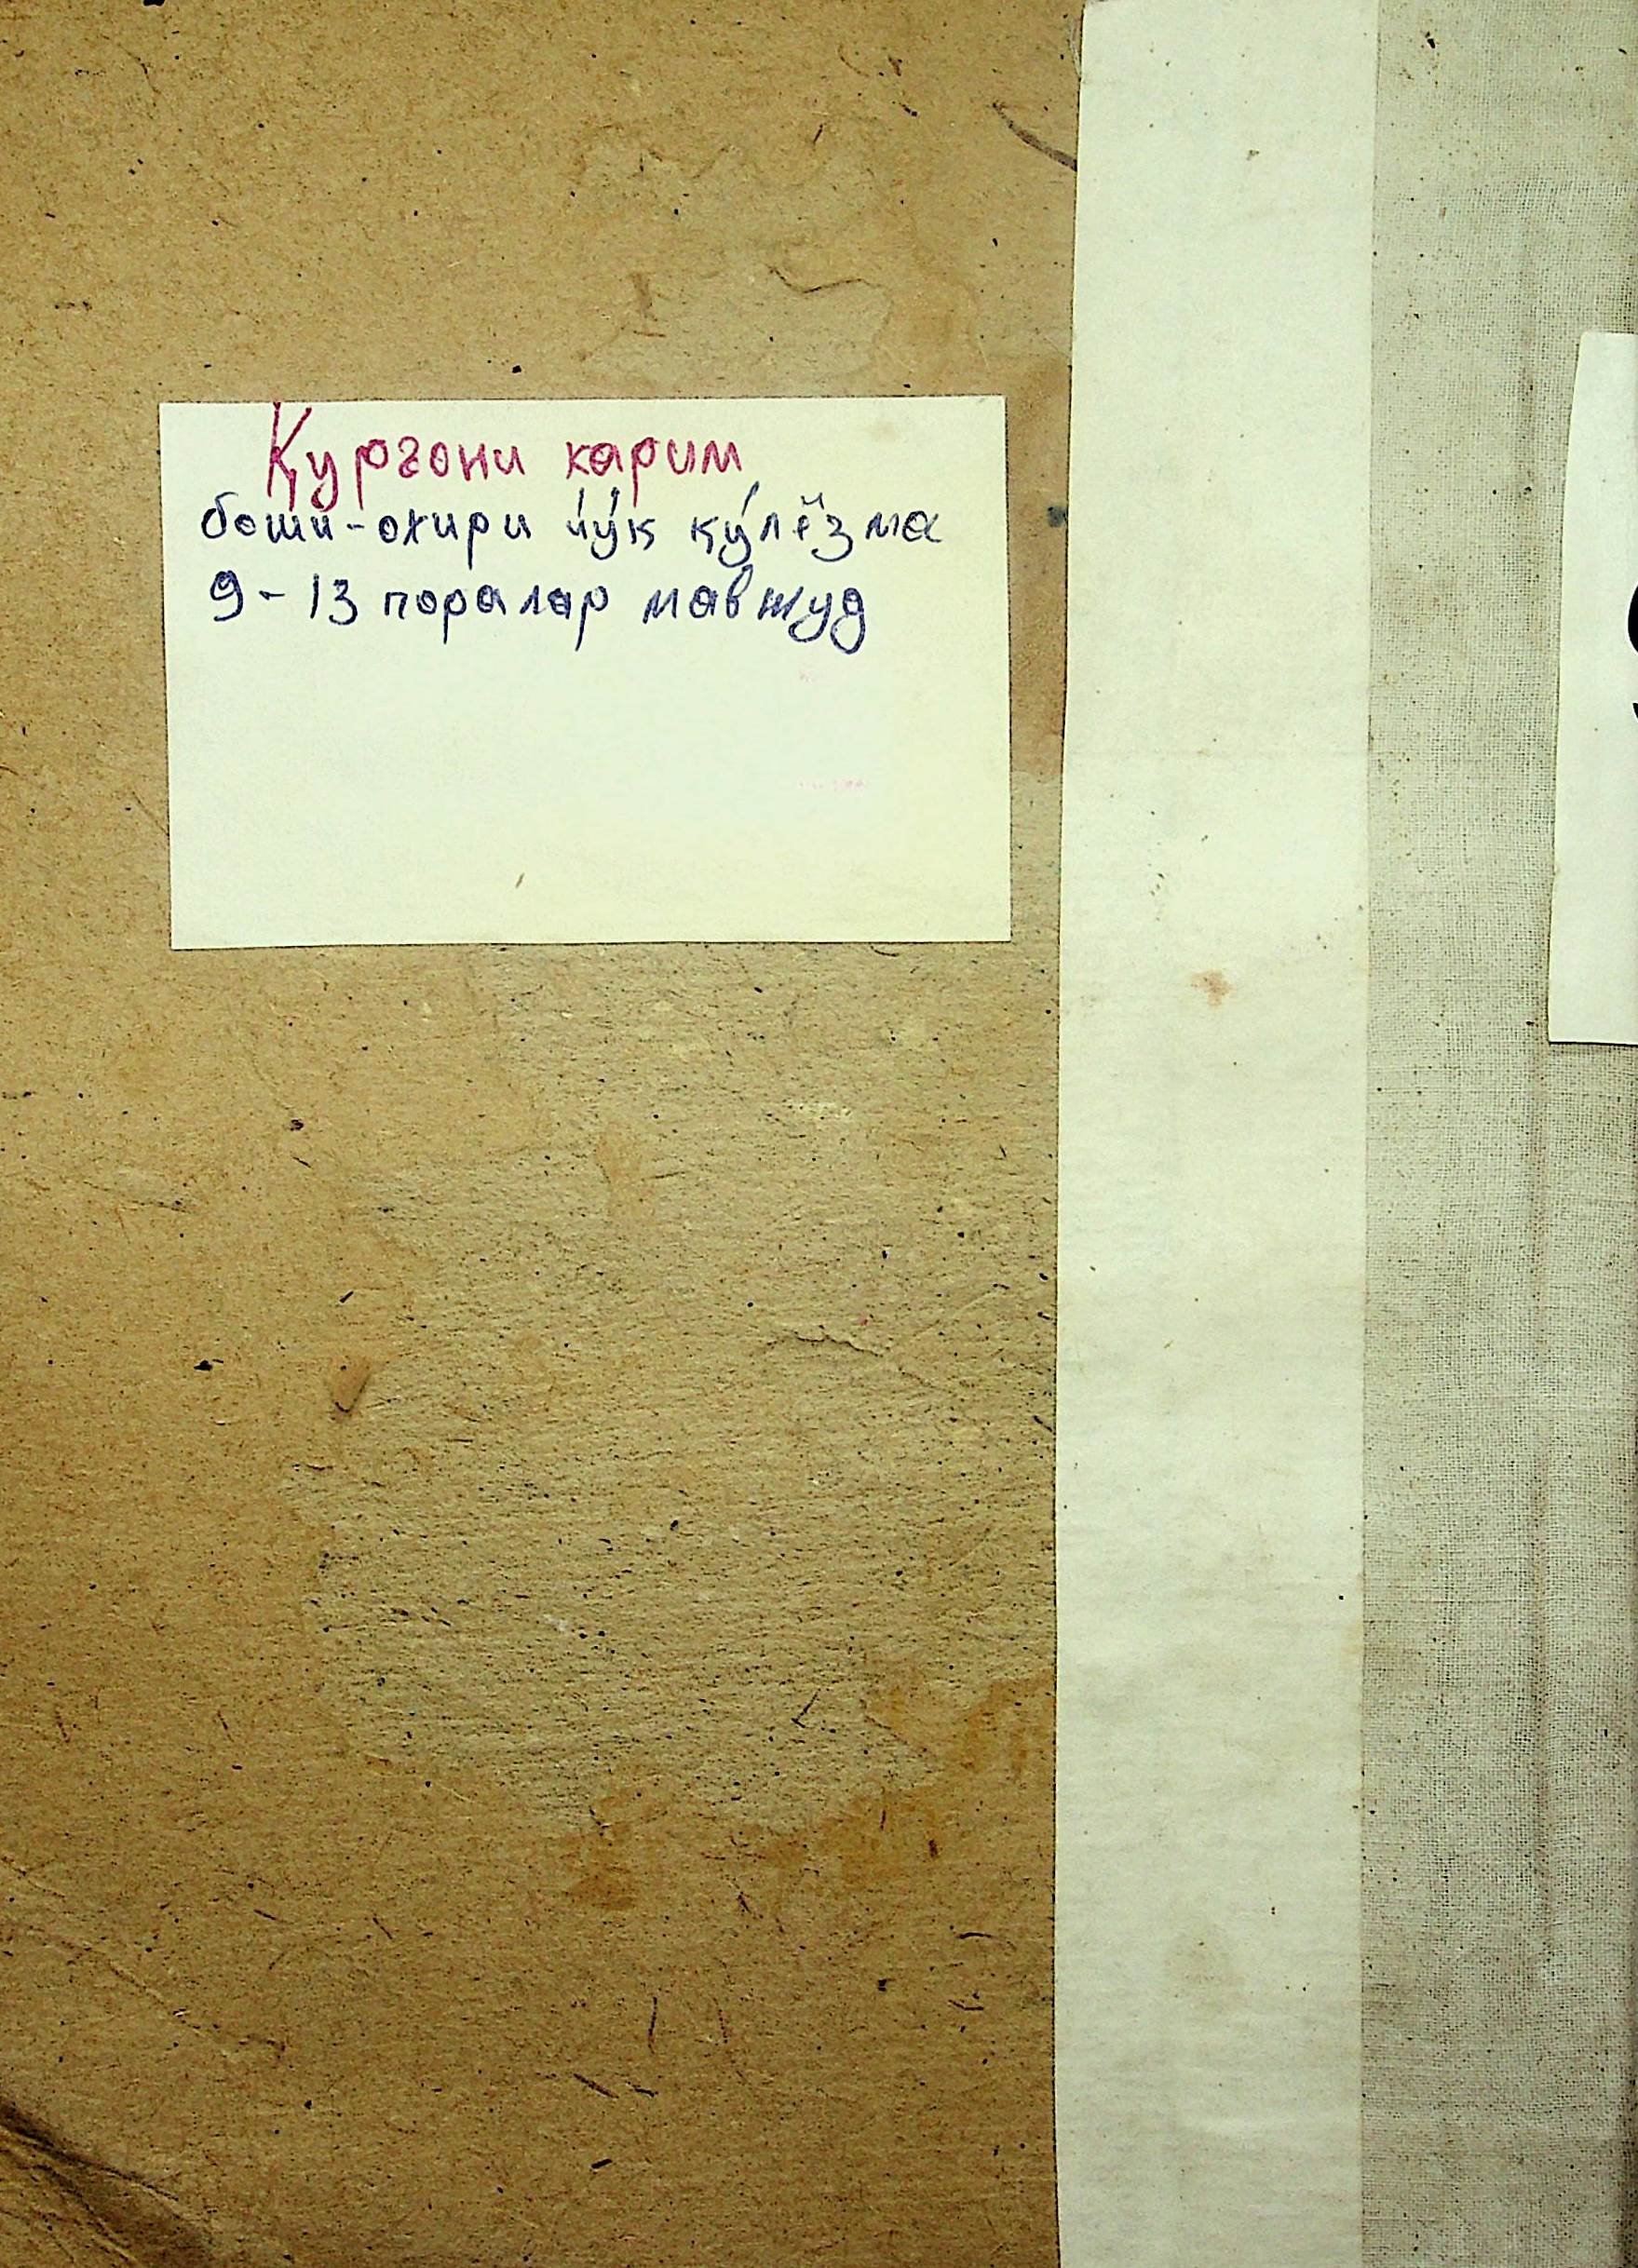 Қурғони карим
боши-охири йўк қўлёзма
9-13 поралар мавжуд